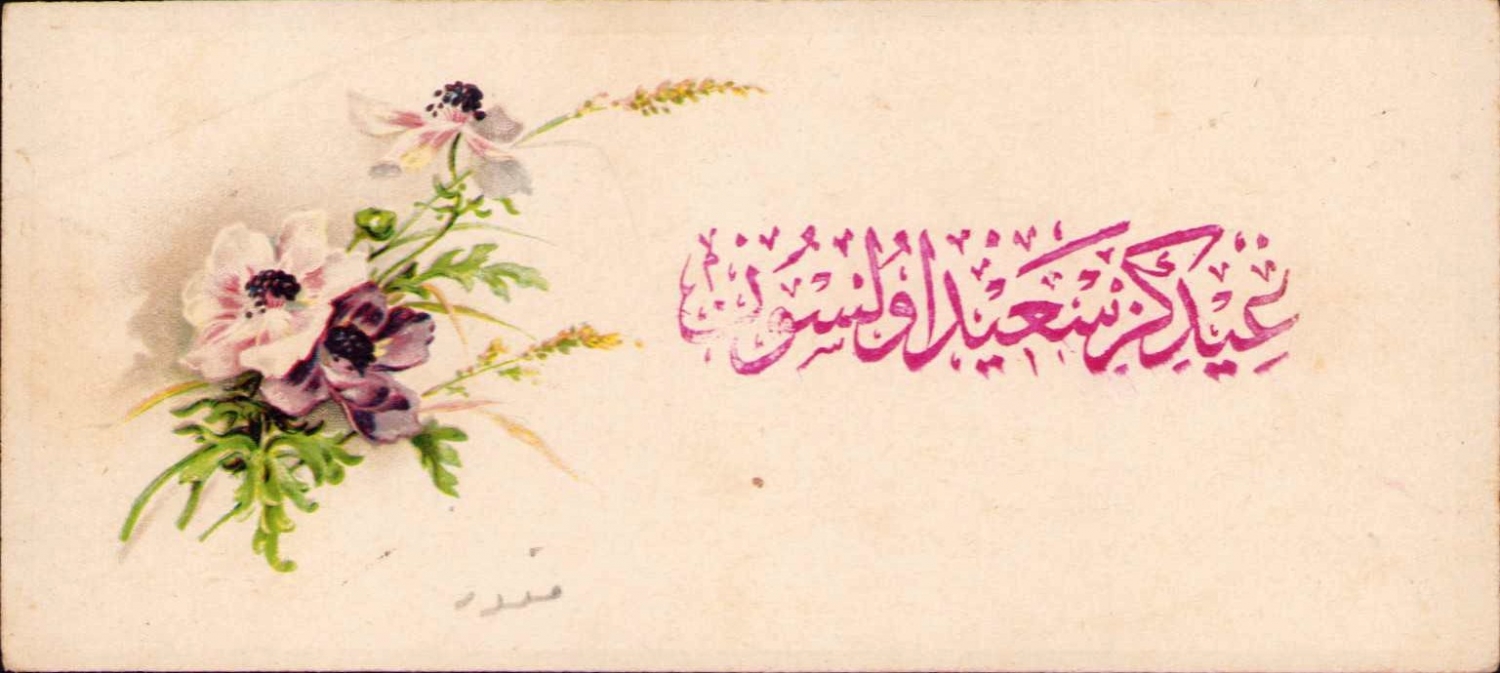 عیدكز سعید اولسون